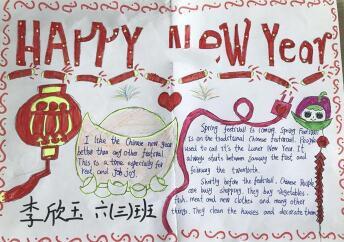 HAPPY NEW Year
I like the Chinese new year
better than any other festival.
This is a time especially for
rest and joy.
Spring festival is coming. Spring Festival
is on the traditional Chinese festival. People
used to call it's the Lunar New Year. It
always starts between January the first, and
february the twentieth.
Shortly before the festival, Chinese People
are busy shopping. They buy vegetables
fish, meat and new clothes and many other
things. They clean the houses and decorate them
李欣玉 六(三)班